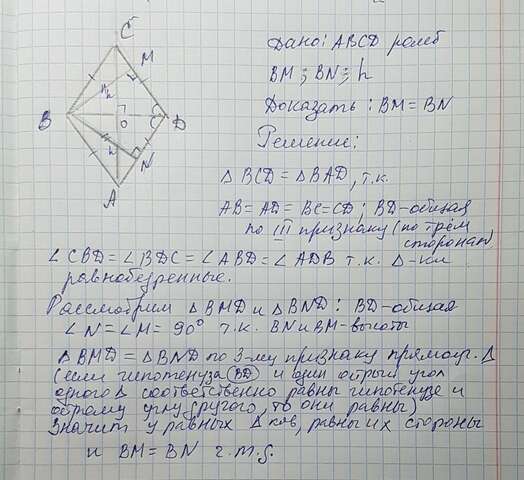 C
M
B
h
O
D
h
N
A
Дано: ABCD ромб
BM; BN; h
Доказать: BM = BN
Решение:
△ BCD = △ BAD, т.к.
AB = AD = BC = CD; BD - общая
по III признаку (по трём
сторонам)
∠ CBD = ∠ BDC = ∠ ABD = ∠ ADB т.к. △-ки
равнобедренные.
Рассмотрим △ BMD и △ BND: BD - общая
∠ N = ∠ M = 90° т.к. BN и BM - высоты
△ BMD = △ BND по 3-му признаку прямоуг. △
(если гипотенуза (BD) и один острый угол
одного △ соответственно равны гипотенузе и
острому углу другого, то они равны)
Значит у равных △ков, равны их стороны
и BM = BN ч.т.д.